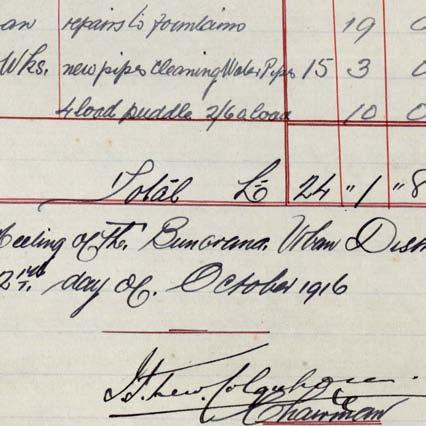 an repairs to fountains 19 0
Wks. new pipes Cleaning Water Pipes 15 3 0
4 load puddle 2/6 a load 10 0
Total £ 24 " 1 " 8
Meeting of the Buncrana Urban Dist
day of October 1916
Colquhoun
Chairman